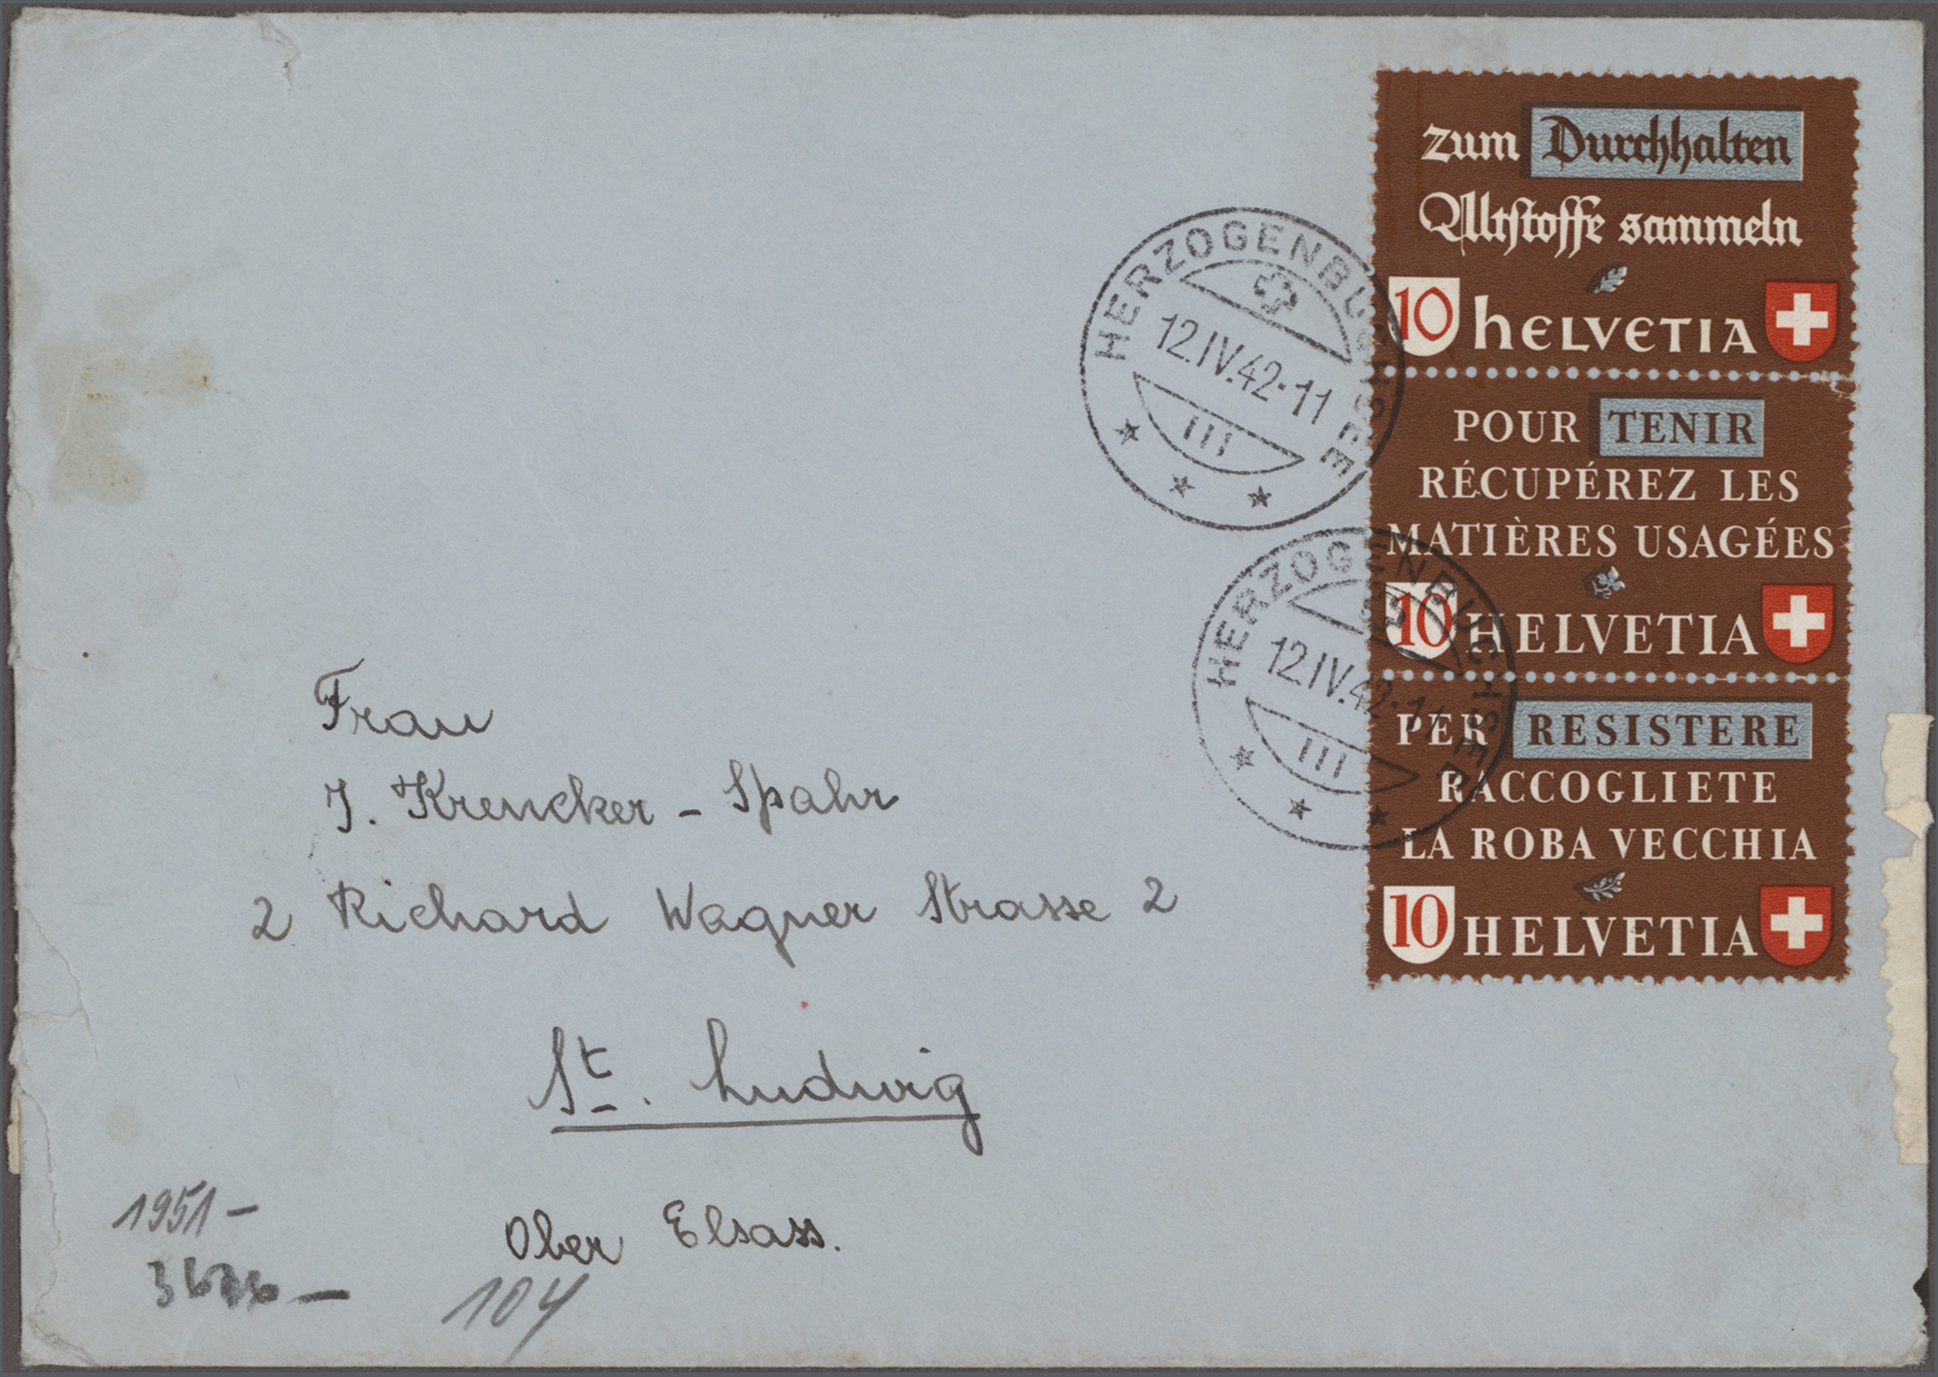 zum Durchhalten
Altstoffe sammeln
10 HELVETIA
POUR TENIR
RÉCUPÉREZ LES
MATIÈRES USAGÉES
10 HELVETIA
PER RESISTERE
RACCOGLIETE
LA ROBA VECCHIA
10 HELVETIA
HERZOGENBUCHSEE
12.IV.42-11
III
HERZOGENBUCHSEE
12.IV.42-11
III
Frau
J. Krencker - Spahr
2 Richard Wagner Strasse 2
St. Ludwig
Ober Elsass.
1951-
104